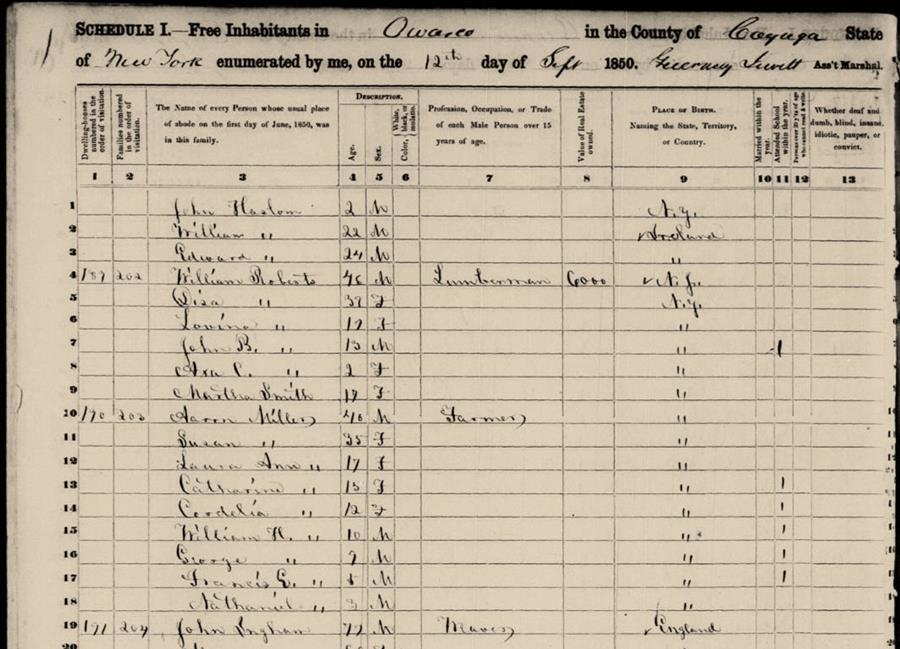 SCHEDULE I.—Free Inhabitants in Owasco in the County of Cayuga State
of New York enumerated by me, on the 12th day of Sept 1850. Ass't Marshal.
Dwelling-houses numbered in the order of visitation.
Families numbered in the order of visitation.
The Name of every Person whose usual place of abode on the first day of June, 1850, was in this family.
DESCRIPTION.
Age.
Sex.
Color, White, black, or mulatto.
Profession, Occupation, or Trade of each Male Person over 15 years of age.
Value of Real Estate owned.
PLACE OF BIRTH. Naming the State, Territory, or Country.
Married within the year.
Attended School within the year.
Persons over 20 y'rs of age who cannot read & write.
Whether deaf and dumb, blind, insane, idiotic, pauper, or convict.
1 2 3 4 5 6 7 8 9 10 11 12 13
1 John Haslom 2 M N.Y.
2 William " 22 M Ireland
3 Edward " 24 M "
4 189 202 William Roberts M Lumberman 6000 N.J.
5 " F N.Y.
6 Lovina " F "
7 John B. " 13 M " 1
8 C. " 2 F "
9 Martha Smith F "
10 190 203 Aaron Miller 40 M Farmer "
11 Susan " 35 F "
12 Laura Ann " 17 F "
13 Catharine " 15 F " 1
14 Cordelia " 12 F " 1
15 William H. " 10 M " 1
16 George " M " 1
17 Francis " M " 1
18 Nathaniel " 3 M "
19 191 204 John Ingham M England
20